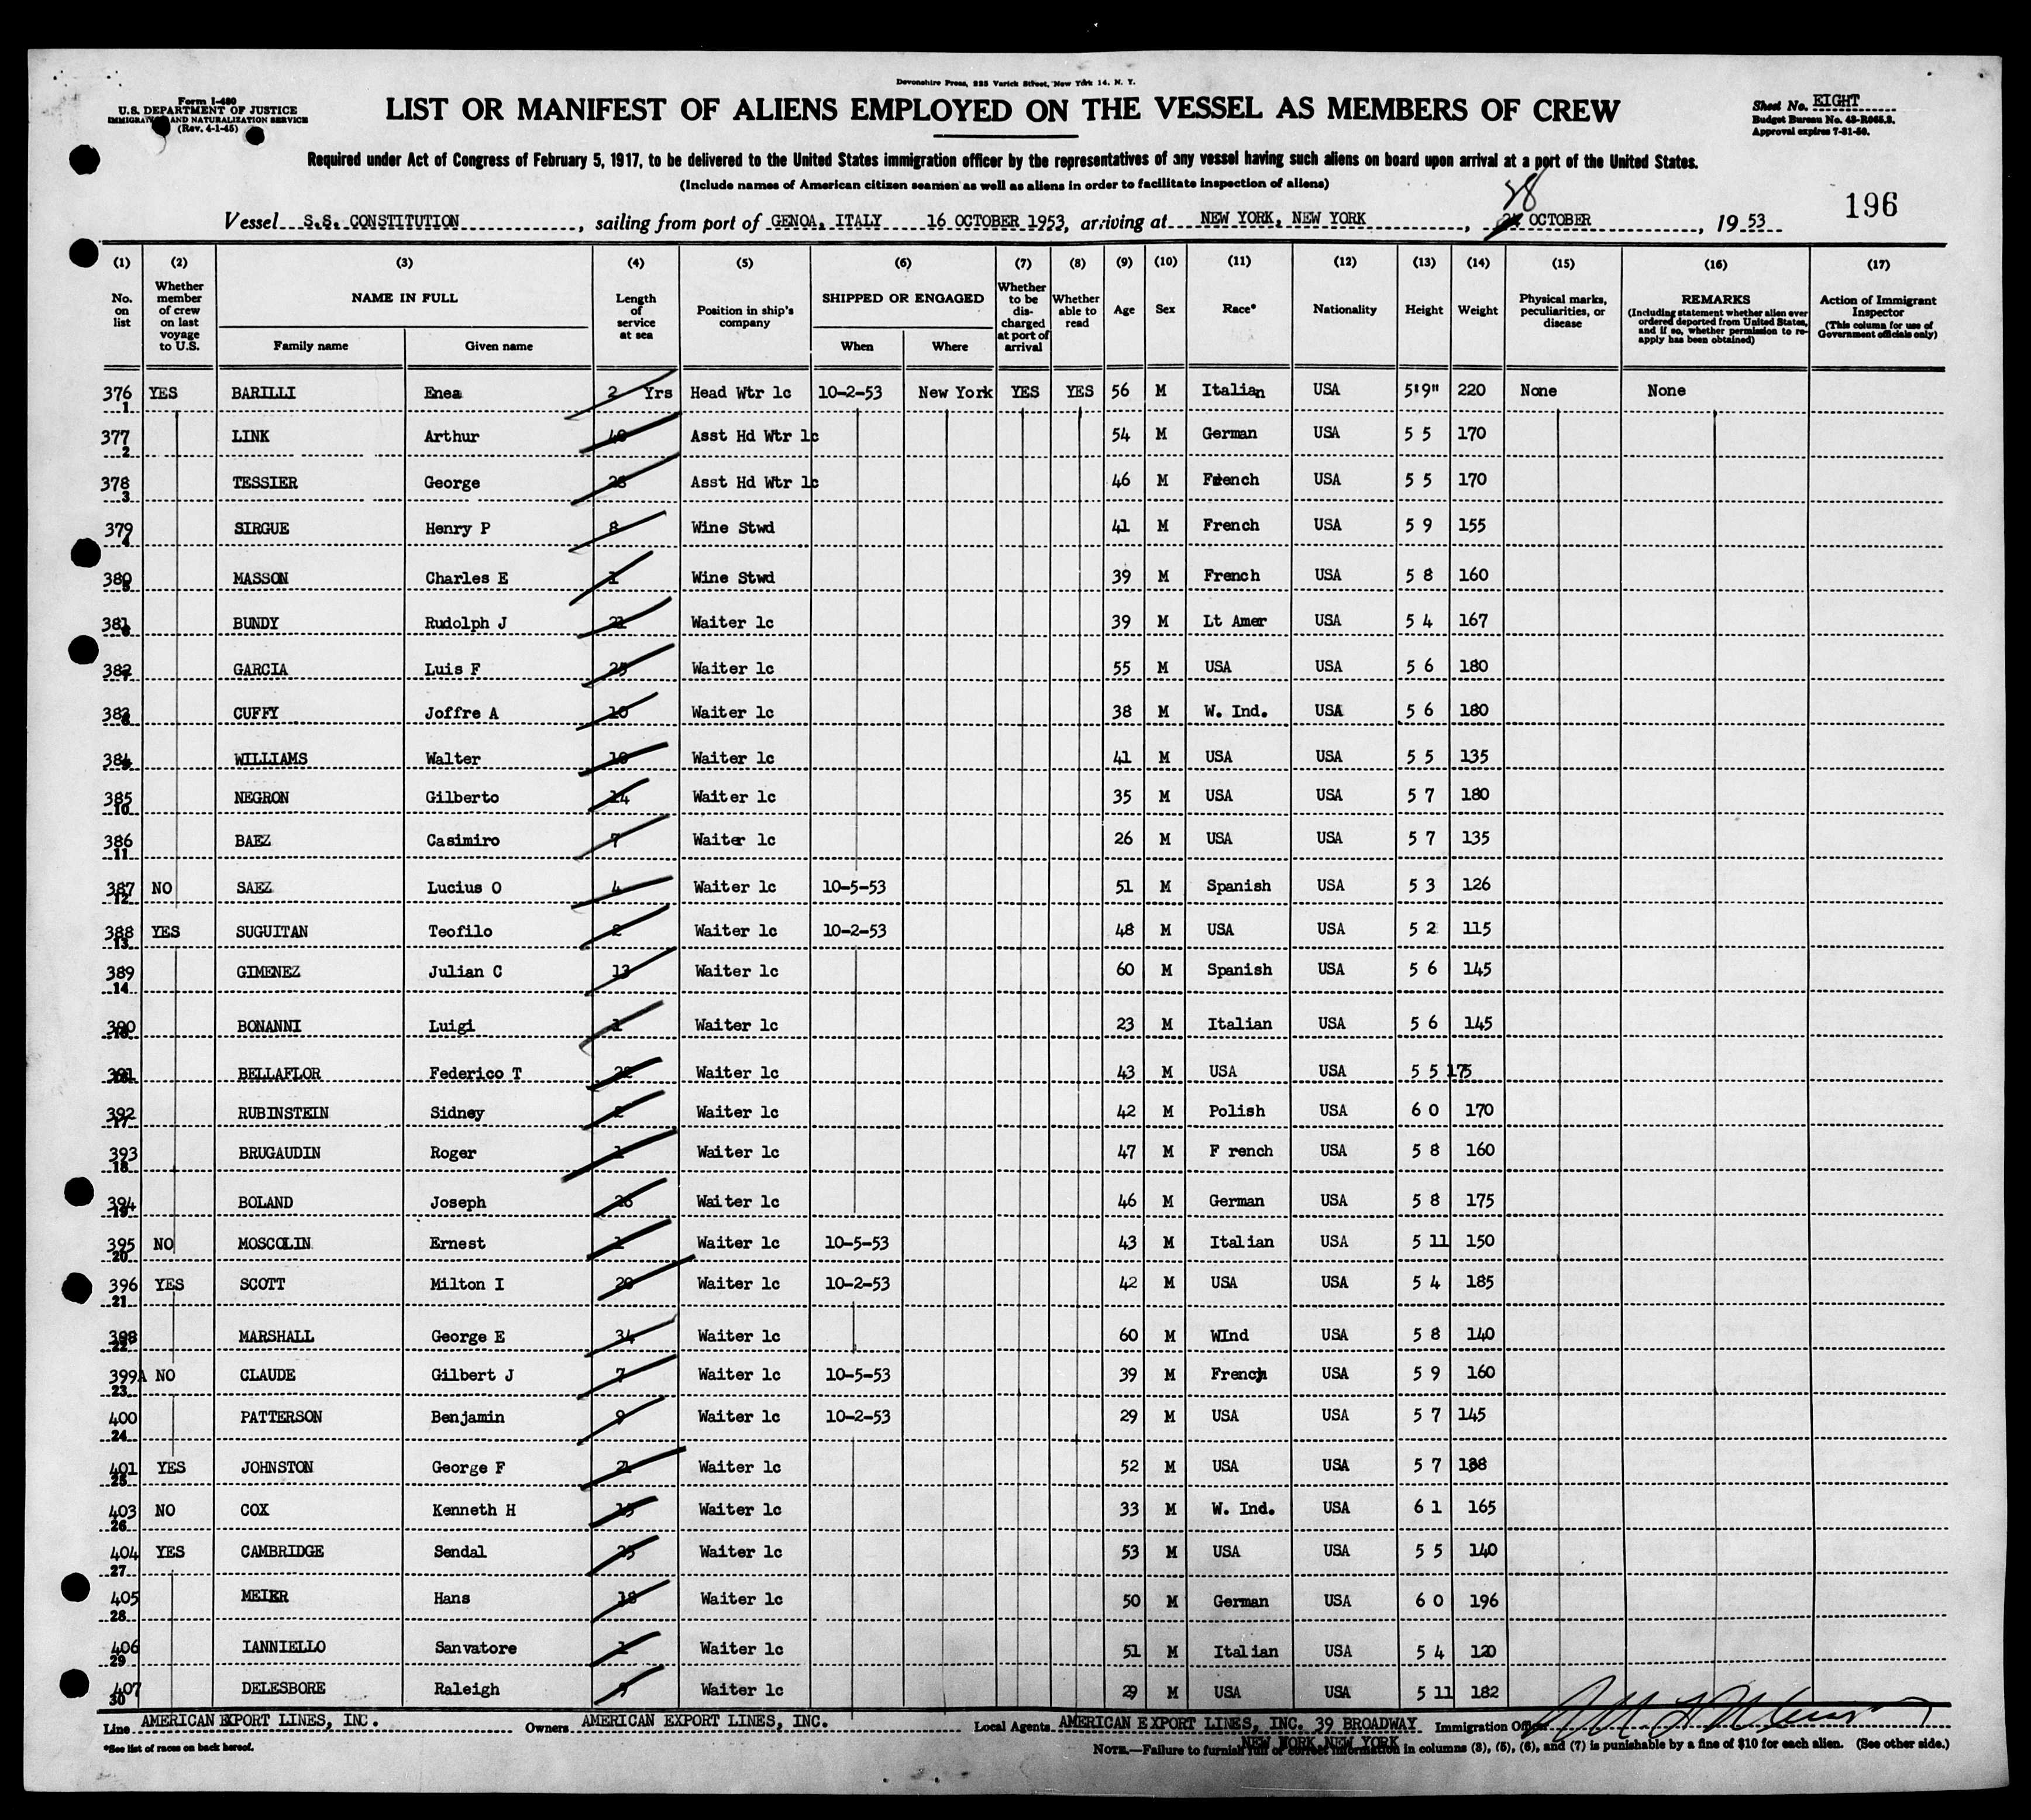 Devonshire Press, 225 Varick Street, New York 14, N. Y.
Form I-480
U.S. DEPARTMENT OF JUSTICE
IMMIGRATION AND NATURALIZATION SERVICE
(Rev. 4-1-45)
LIST OR MANIFEST OF ALIENS EMPLOYED ON THE VESSEL AS MEMBERS OF CREW
Sheet No. EIGHT
Budget Bureau No. 43-R065.2.
Approval expires 7-31-50.
Required under Act of Congress of February 5, 1917, to be delivered to the United States immigration officer by the representatives of any vessel having such aliens on board upon arrival at a port of the United States.
(Include names of American citizen seamen as well as aliens in order to facilitate inspection of aliens)
196
Vessel S.S. CONSTITUTION, sailing from port of GENOA, ITALY 16 OCTOBER 1953, arriving at NEW YORK, NEW YORK, 28 OCTOBER, 19 53
(1) (2) (3) (4) (5) (6) (7) (8) (9) (10) (11) (12) (13) (14) (15) (16) (17)
No. on list
Whether member of crew on last voyage to U.S.
NAME IN FULL
Family name
Given name
Length of service at sea
Position in ship's company
SHIPPED OR ENGAGED
When
Where
Whether to be discharged at port of arrival
Whether able to read
Age
Sex
Race*
Nationality
Height
Weight
Physical marks, peculiarities, or disease
REMARKS
(Including statement whether alien ever ordered deported from United States, and if so, whether permission to reapply has been obtained)
Action of Immigrant Inspector
(This column for use of Government officials only)
376 1 YES BARILLI Enea 2 Yrs Head Wtr 1c 10-2-53 New York YES YES 56 M Italian USA 5'9" 220 None None
377 2 LINK Arthur 40 Asst Hd Wtr 1c 54 M German USA 5 5 170
378 3 TESSIER George 28 Asst Hd Wtr 1c 46 M French USA 5 5 170
379 4 SIRGUE Henry P 8 Wine Stwd 41 M French USA 5 9 155
380 5 MASSON Charles E 1 Wine Stwd 39 M French USA 5 8 160
381 6 BUNDY Rudolph J 21 Waiter 1c 39 M Lt Amer USA 5 4 167
382 7 GARCIA Luis F 25 Waiter 1c 55 M USA USA 5 6 180
383 8 CUFFY Joffre A 10 Waiter 1c 38 M W. Ind. USA 5 6 180
384 9 WILLIAMS Walter 10 Waiter 1c 41 M USA USA 5 5 135
385 10 NEGRON Gilberto 14 Waiter 1c 35 M USA USA 5 7 180
386 11 BAEZ Casimiro 7 Waiter 1c 26 M USA USA 5 7 135
387 12 NO SAEZ Lucius O 4 Waiter 1c 10-5-53 51 M Spanish USA 5 3 126
388 13 YES SUGUITAN Teofilo 2 Waiter 1c 10-2-53 48 M USA USA 5 2 115
389 14 GIMENEZ Julian C 13 Waiter 1c 60 M Spanish USA 5 6 145
390 15 BONANNI Luigi 1 Waiter 1c 23 M Italian USA 5 6 145
391 16 BELLAFLOR Federico T 22 Waiter 1c 43 M USA USA 5 5 175
392 17 RUBINSTEIN Sidney 2 Waiter 1c 42 M Polish USA 6 0 170
393 18 BRUGAUDIN Roger 1 Waiter 1c 47 M F rench USA 5 8 160
394 19 BOLAND Joseph 26 Waiter 1c 46 M German USA 5 8 175
395 20 NO MOSCOLIN Ernest 1 Waiter 1c 10-5-53 43 M Italian USA 5 11 150
396 21 YES SCOTT Milton I 20 Waiter 1c 10-2-53 42 M USA USA 5 4 185
398 22 MARSHALL George E 34 Waiter 1c 60 M WInd USA 5 8 140
399A 23 NO CLAUDE Gilbert J 7 Waiter 1c 10-5-53 39 M French USA 5 9 160
400 24 PATTERSON Benjamin 9 Waiter 1c 10-2-53 29 M USA USA 5 7 145
401 25 YES JOHNSTON George F 21 Waiter 1c 52 M USA USA 5 7 138
403 26 NO COX Kenneth H 15 Waiter 1c 33 M W. Ind. USA 6 1 165
404 27 YES CAMBRIDGE Sendal 25 Waiter 1c 53 M USA USA 5 5 140
405 28 MEIER Hans 18 Waiter 1c 50 M German USA 6 0 196
406 29 IANNIELLO Sanvatore 1 Waiter 1c 51 M Italian USA 5 4 120
407 30 DELESBORE Raleigh 9 Waiter 1c 29 M USA USA 5 11 182
Line AMERICAN EXPORT LINES, INC. Owners AMERICAN EXPORT LINES, INC. Local Agents AMERICAN EXPORT LINES, INC. 39 BROADWAY Immigration Officer
NEW YORK NEW YORK
*See list of races on back hereof.
NOTE.—Failure to furnish full or correct information in columns (3), (5), (6), and (7) is punishable by a fine of $10 for each alien. (See other side.)